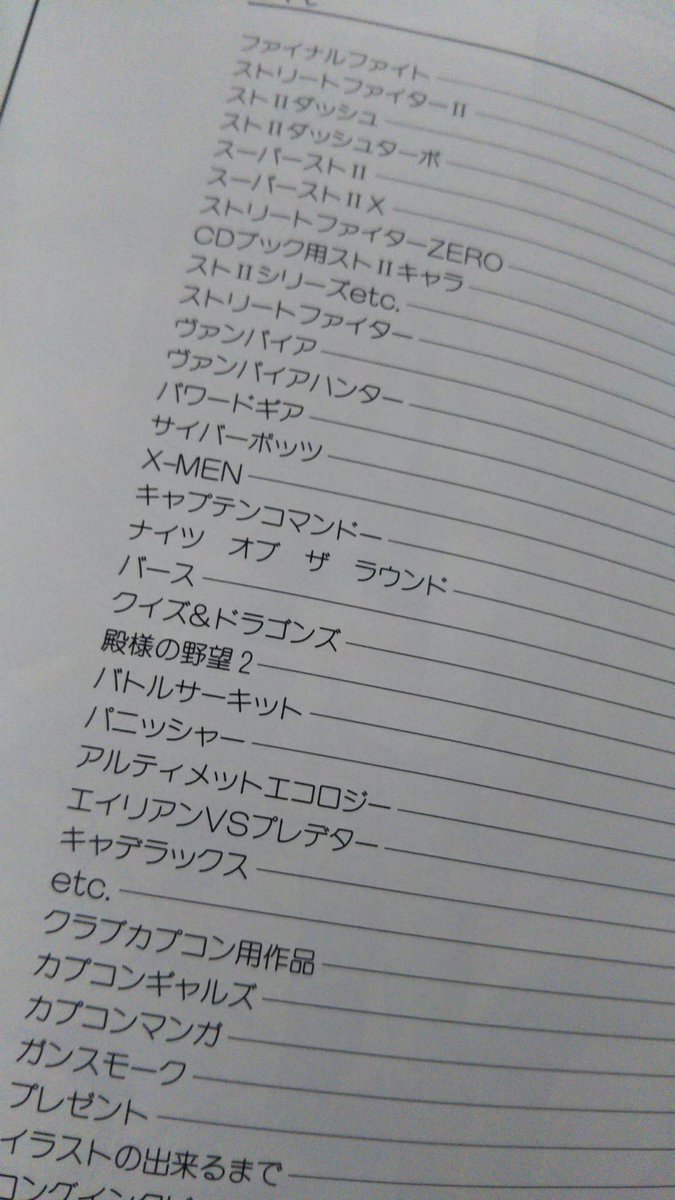 ファイナルファイト
ストリートファイターII
ストIIダッシュ
ストIIダッシュターボ
スーパーストII
スーパーストII X
ストリートファイターZERO
CDブック用ストIIキャラ
ストIIシリーズetc.
ストリートファイター
ヴァンパイア
ヴァンパイアハンター
パワードギア
サイバーボッツ
X-MEN
キャプテンコマンドー
ナイツ オブ ザ ラウンド
バース
クイズ&ドラゴンズ
殿様の野望2
バトルサーキット
パニッシャー
アルティメットエコロジー
エイリアンVSプレデター
キャデラックス
etc.
クラブカプコン用作品
カプコンギャルズ
カプコンマンガ
ガンスモーク
プレゼント
イラストの出来るまで